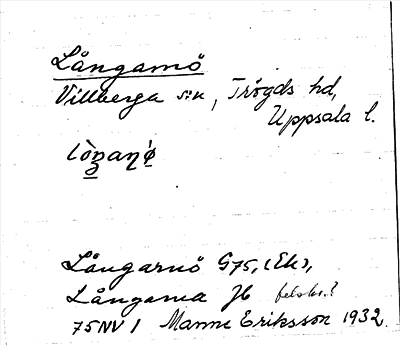 Långarnö
Villberga sn, Trögds hd,
Uppsala l.
Långarnö G75, (Ek),
Långarna Jb felskr.?
75NV1 Manne Eriksson 1932.